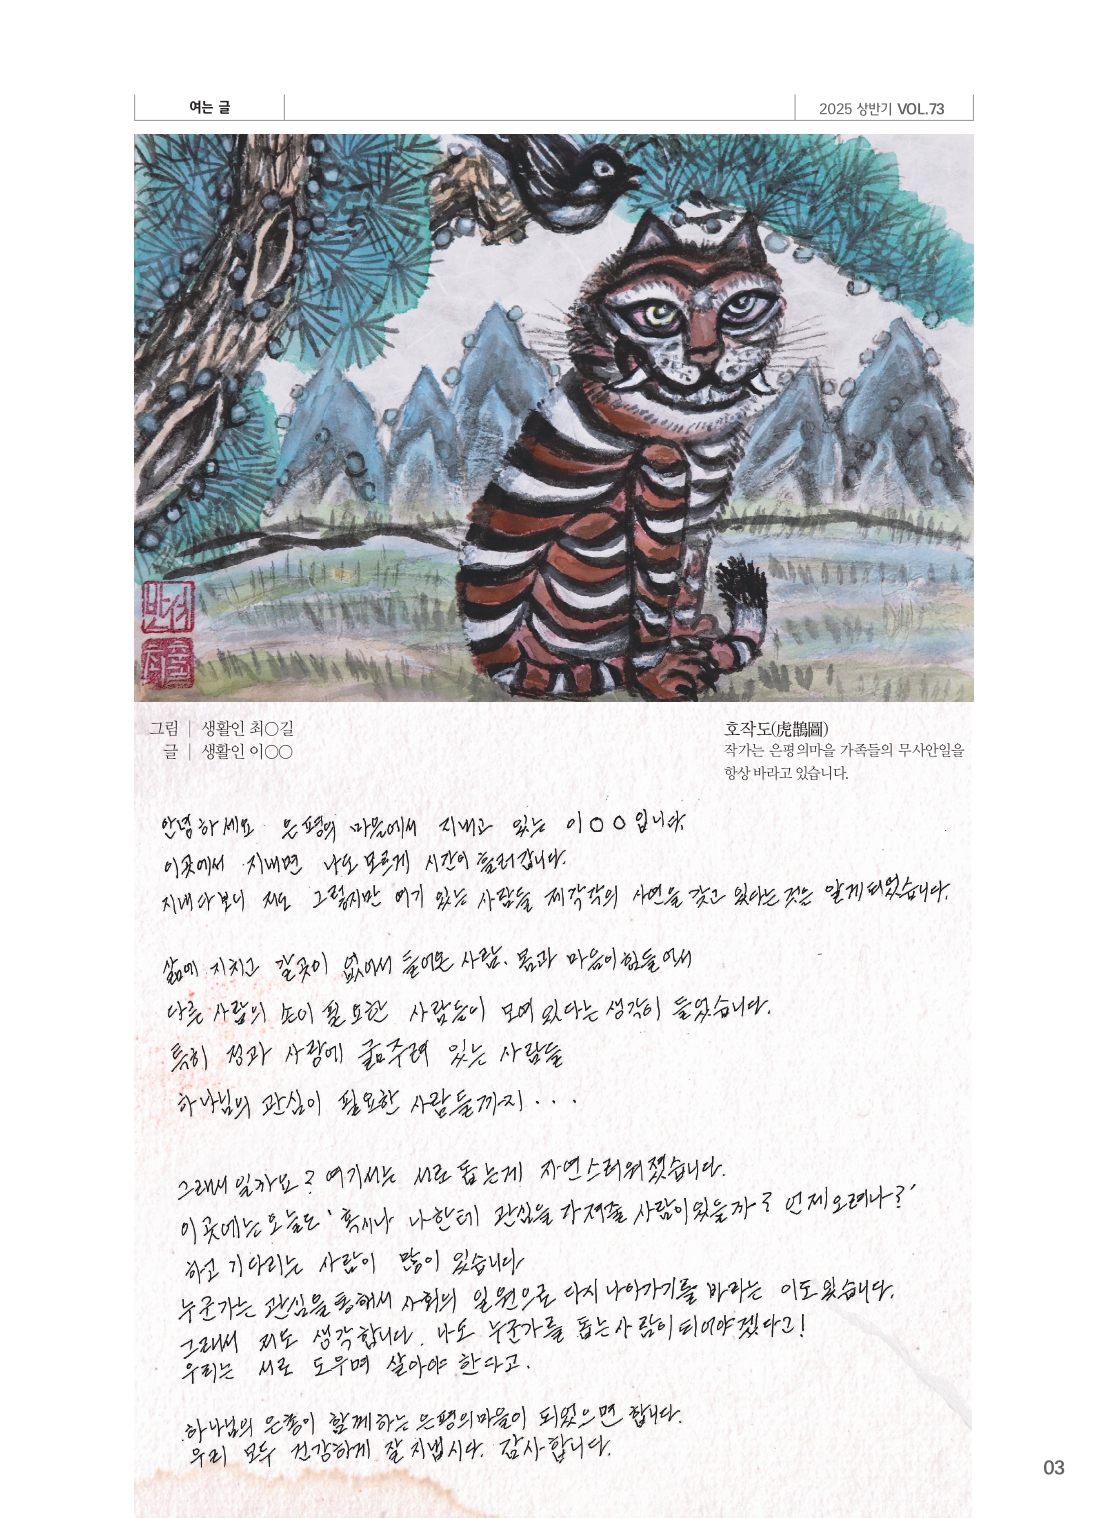 여는 글
2025 상반기 VOL.73
그림 | 생활인 최○길
글 | 생활인 이○○
호작도(虎鵲圖)
작가는 은평의마을 가족들의 무사안일을
항상 바라고 있습니다.
안녕하세요 은평의 마을에서 지내고 있는 이○○입니다
이곳에서 지내면 나도 모르게 시간이 흘러갑니다.
지내다보니 저도 그렇지만 여기 있는 사람들 제각각의 사연을 갖고 있다는 것은 알게 되었습니다.
삶에 지치고 갈곳이 없어서 들어온 사람, 몸과 마음이 힘들어서
다른 사람의 손이 필요한 사람들이 모여 있다는 생각이 들었습니다.
특히 정과 사랑에 굶주려 있는 사람들
하나님의 관심이 필요한 사람들까지...
그래서 일까요? 여기서는 서로 돕는게 자연스러워졌습니다.
이곳에는 오늘도 '혹시나 나한테 관심을 가져줄 사람이 있을까? 언제 오려나?'
하고 기다리는 사람이 많이 있습니다
누군가는 관심을 통해서 사회의 일원으로 다시 나아가기를 바라는 이도 있습니다.
그래서 저도 생각합니다. 나도 누군가를 돕는 사람이 되어야겠다고!
우리는 서로 도우며 살아야 한다고.
하나님의 은총이 함께하는 은평의마을이 되었으면 합니다.
우리 모두 건강하게 잘 지냅시다. 감사합니다.
03